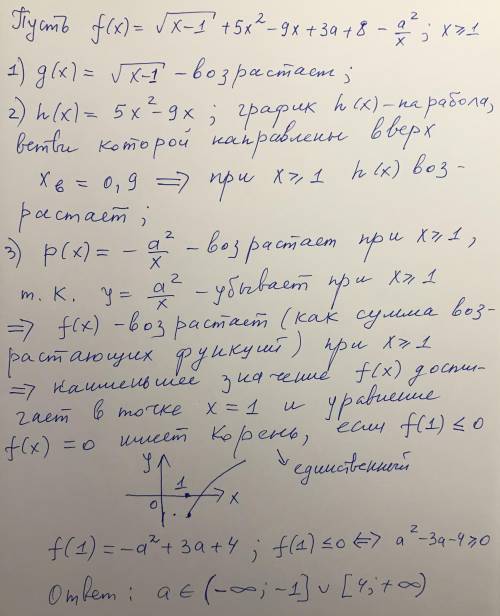 Пусть f(x) = √x-1 + 5x² - 9x + 3a + 8 - a²/x ; x ⩾ 1
1) g(x) = √x-1 - возрастает;
2) h(x) = 5x² - 9x ; график h(x) - парабола,
ветви которой направлены вверх
xв = 0,9 ⟹ при x ⩾ 1 h(x) воз-
растает;
3) p(x) = - a²/x - возрастает при x ⩾ 1,
т.к. y = a²/x - убывает при x ⩾ 1
⟹ f(x) - возрастает (как сумма воз-
растающих функций) при x ⩾ 1
⟹ наименьшее значение f(x) дости-
гает в точке x = 1 и уравнение
f(x) = 0 имеет корень, если f(1) ≤ 0
единственный
y
1
0
x
f(1) = -a² + 3a + 4 ; f(1) ≤ 0 ⟺ a² - 3a - 4 ⩾ 0
Ответ: a ∈ (-∞; -1] ∪ [4; +∞)